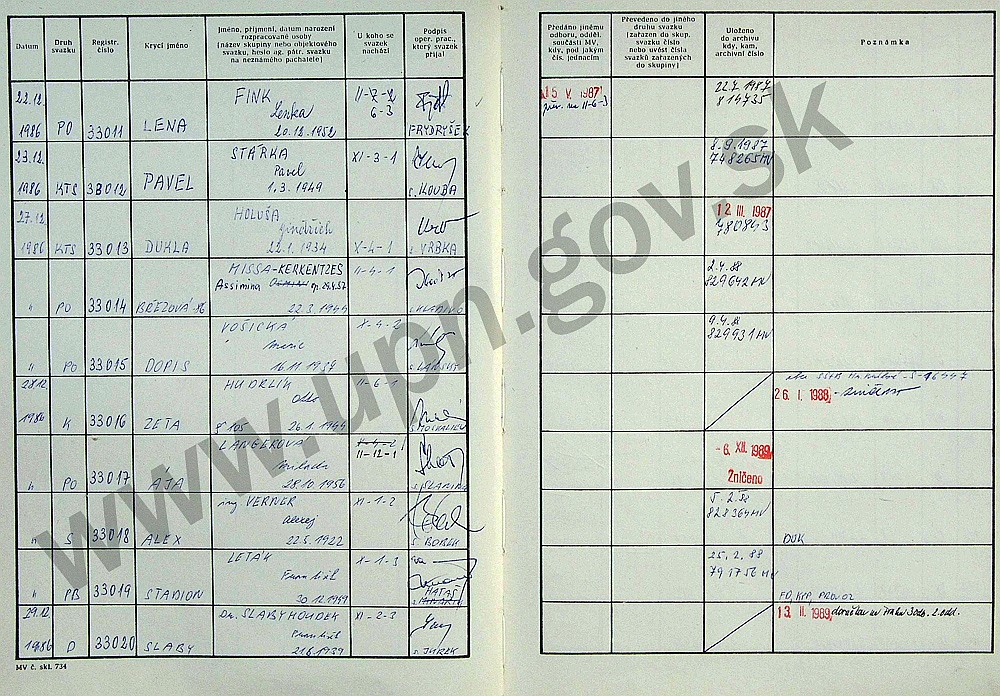 Datum
Druh svazku
Registr. číslo
Krycí jméno
Jméno, příjmení, datum narození rozpracované osoby (název skupiny nebo objektového svazku, heslo ag. pátr. svazku na neznámého pachatele)
U koho se svazek nachází
Podpis oper. prac., který svazek přijal
Předáno jinému odboru, odděl. součásti MV, kdy, pod jakým čís. jednacím
Převedeno do jiného druhu svazku (zařazen do skup. svazku číslo nebo uvést čísla svazků zařazených do skupiny)
Uloženo do archivu kdy, kam, archivní číslo
Poznámka
22.12. 1986 PO 33011 LENA
FINK
Lenka
20.12.1952
6-3
FRYDRYŠEK
5 V. 1987
22.7.1987
814735
23.12. 1986 KTS 33012 PAVEL
STÁRKA
Pavel
1.3.1949
XI-3-1
s. KOUBA
8.9.1987
748265 MV
27.12 1986 KTS 33013 DUKLA
HOLUŠA
Jindřich
22.1.1934
X-4-1
s. VRBKA
12. III. 1987
780843
" PO 33014 BŘEZOVÁ-86
MISSA-KERKENTZES
Assimina
22.3.1944
II-4-1
2.4.88
829642 MV
" PO 33015 DOPIS
VOŠICKÁ
Marie
16.11.1937
X-4-2
9.4.88
829931 MV
28.12. 1986 K 33016 ZETA
HUDRLÍK
Otto
§ 105 26.1.1944
II-6-1
26. I. 1988
" PO 33017 ÁJA
LANGEROVÁ
Milada
28.10.1956
X-4-2
II-12-1
- 6. XII. 1989
Zničeno
" S 33018 ALEX
ing VERNER
22.5.1922
XI-1-2
s. BOREK
5.2.88
828364 MV
DUK
" PB 33019 STADION
LETÁK
František
30.12.1949
X-1-3
MATAS
25.2.88
791756 MV
29.12. 1986 D 33020 SLABY
Dr. SLABYHOUDEK
František
21.6.1939
XI-2-3
s. JUREK
13. II. 1989
MV č. skl. 734
www.upn.gov.sk